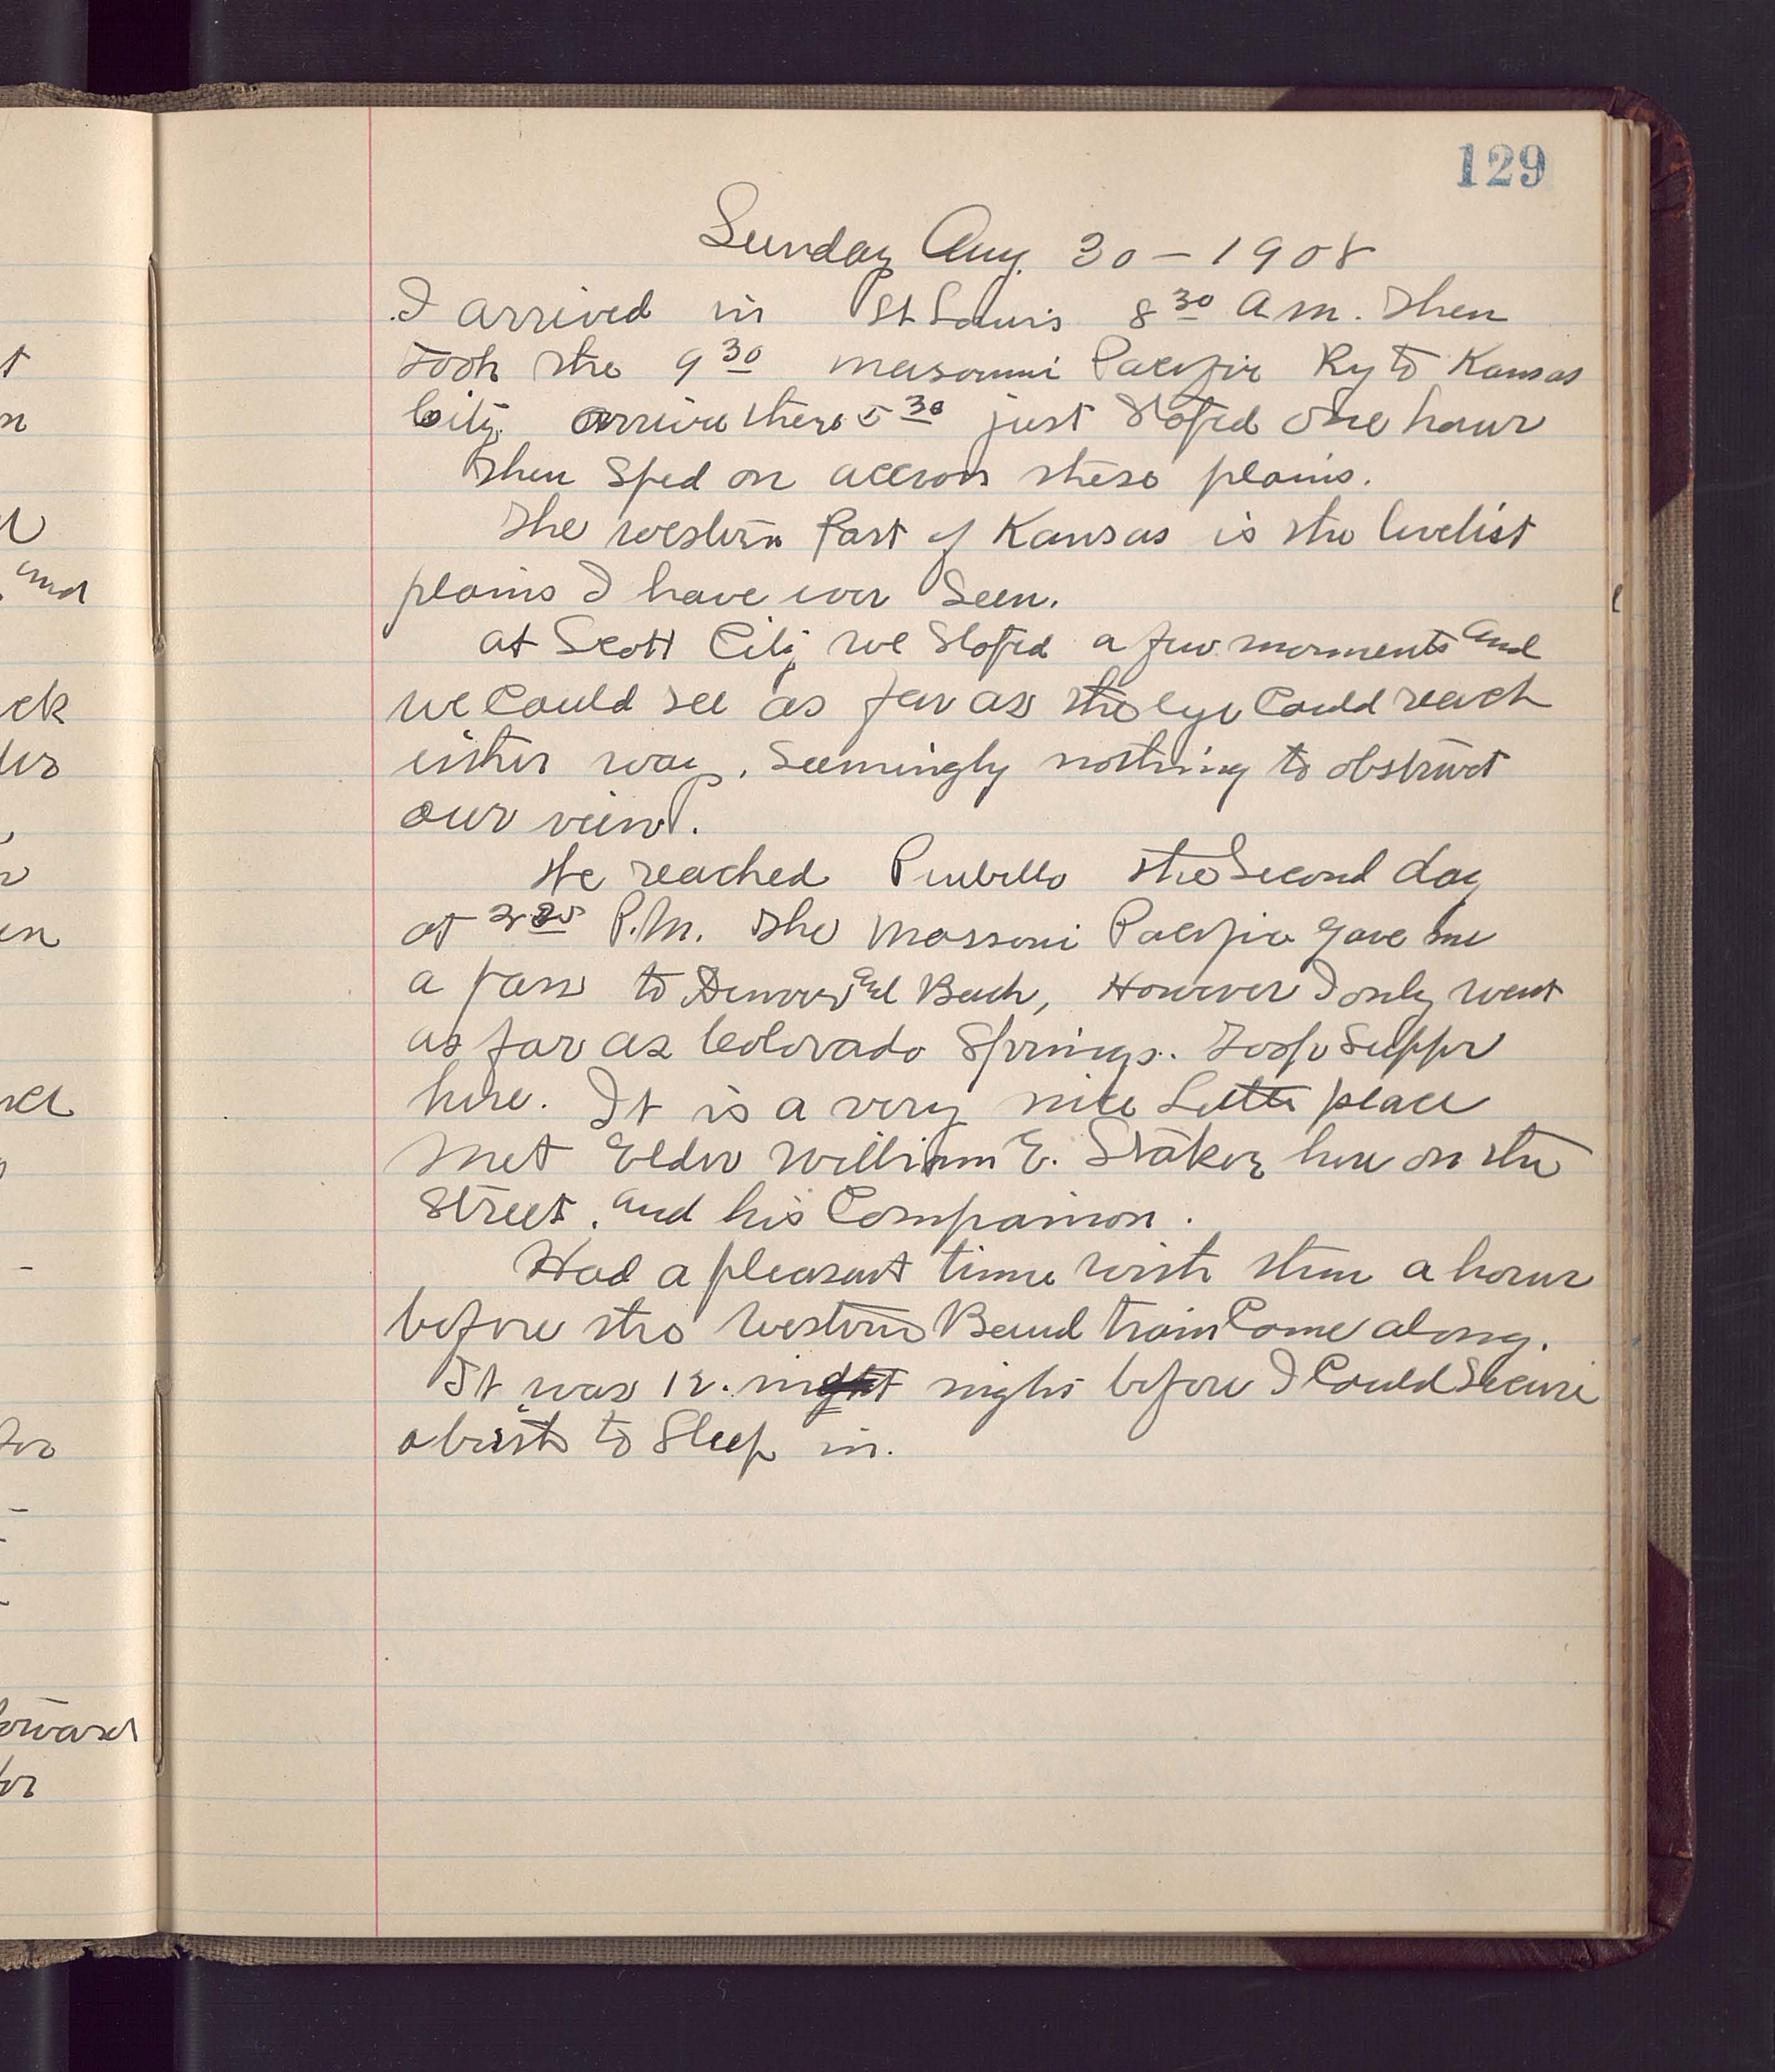 129
Sunday Aug. 30 – 1908
I arrived in St Louis 8 30 a m. Then
Took the 9 30 Messouri Pacific Ry to Kansas
City. arrive there 5 30 just stoped one hour
Then sped on accross these plains.
The western part of Kansas is the levelist
plains I have ever seen.
at Scott City we stoped a few morments and
we could see as far as the eye could reach
either way. Seemingly nothing to obstruct
our view.
We reached Puebello the second day
at P.M. The Messouri Pacific gave me
a pass to Denver and Back, However I only went
as far as Colorado Springs. Took supper
here. It is a very nice Little place
Met Elder William E. Staker here on the
street. and his Companion.
Had a pleasant time with them a hour
before the western Bound train Come along.
It was 12. night before I Could Secure
a birth to Sleep in.
and
ek
en
forward